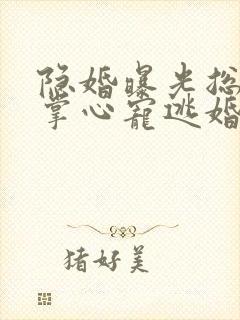 隐婚曝光总
掌心宠逃婚
猪好美